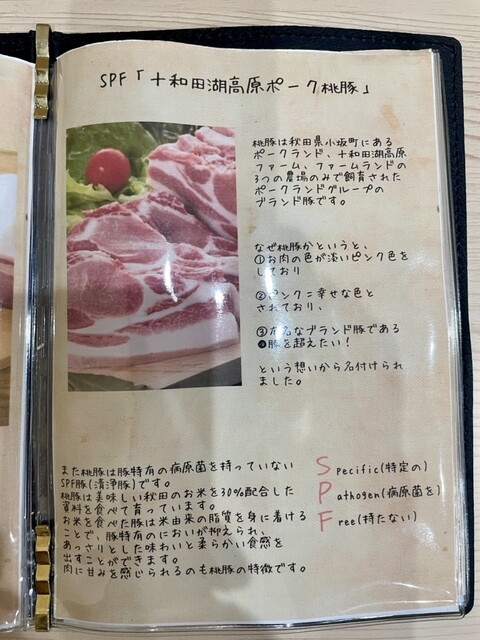 SPF「十和田湖高原ポーク桃豚」
桃豚は秋田県小坂町にある
ポークランド、十和田湖高原
ファーム、ファームランドの
3つの農場のみで飼育された
ポークランドグループの
ブランド豚です。
なぜ桃豚かというと、
①お肉の色が淡いピンク色を
しており
②ピンク＝幸せな色と
されており、
③有名なブランド豚である
豚を超えたい！
という想いから名付けられ
ました。
また桃豚は豚特有の病原菌を持っていない
SPF豚(清浄豚)です。
桃豚は美味しい秋田のお米を30%配合した
資料を食べて育っています。
お米を食べた豚は米由来の脂質を身に着ける
ことで、豚特有のにおいが抑えられ、
あっさりとした味わいと柔らかい食感を
出すことができます。
肉に甘みを感じられるのも桃豚の特徴です。
Specific(特定の)
Pathogen(病原菌を)
Free(持たない)